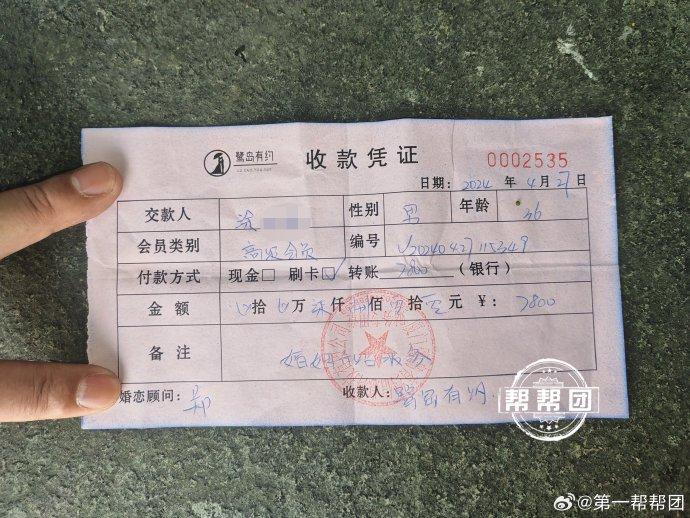 鹭岛有约 收款凭证 0002535
日期: 2024 年 4 月 27 日
交款人 性别 男 年龄 36
会员类别 高级会员 编号
付款方式 现金□ 刷卡☑ 转账 7800 (银行)
金额 拾 万 柒仟 捌佰 零拾 零元 ¥: 7800
备注 婚姻介绍服务
婚恋顾问: 吴 收款人: 鹭岛有约
帮帮团
@第一帮帮团